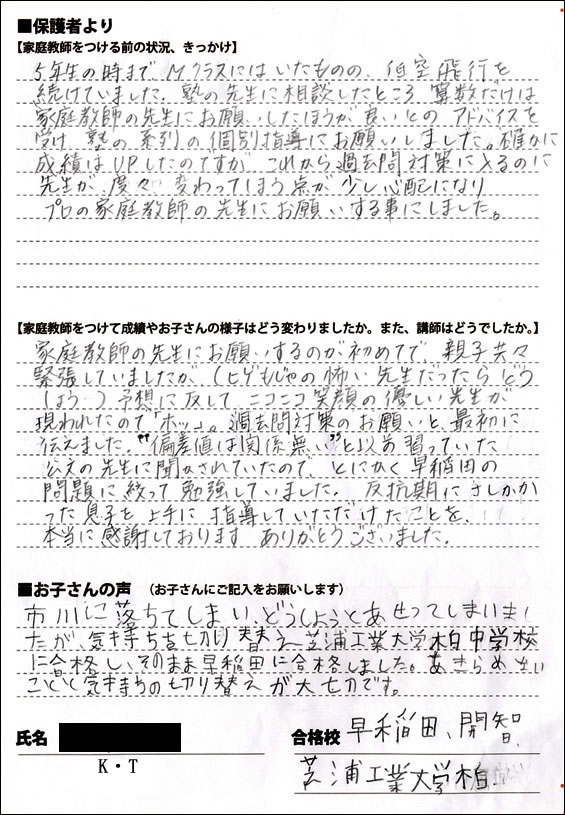 ■保護者より
【家庭教師をつける前の状況、きっかけ】
5年生の時まで Mクラスにはいたものの、低空飛行を
続けていました。塾の先生に相談したところ 算数だけは
家庭教師の先生にお願いしたほうが良いとの アドバイスを
受け 塾の系列の個別指導にお願いしました。確かに
成績はUPしたのですが、これから過去問対策に入るのに
先生が 度々 変わってしまう点が少し心配になり
プロの家庭教師の先生にお願いする事にしました。
【家庭教師をつけて成績やお子さんの様子はどう変わりましたか。また、講師はどうでしたか。】
家庭教師の先生にお願いするのが初めてで 親子共々
緊張していましたが、(ヒゲもじゃの怖い先生だったらどう
しよう…) 予想に反して ニコニコ笑顔の優しい先生が
現われたので「ホッ」。過去問対策のお願いと、最初に
伝えました。"偏差値は関係無い"と以前習っていた
公文の先生に聞かされていたので とにかく早稲田の
問題に絞って勉強していました。反抗期にさしかか
った息子を上手に指導していただけたことを、
本当に感謝しております ありがとうございました。
■お子さんの声 （お子さんにご記入をお願いします）
市川に落ちてしまい、どうしようとあせってしまいまし
たが、気持ちを切り替え 芝浦工業大学柏中学校
に合格し、そのまま早稲田に合格しました。あきらめない
ことと気持ちの切り替えが大切です。
氏名
K・T
合格校 早稲田、開智、
芝浦工業大学柏